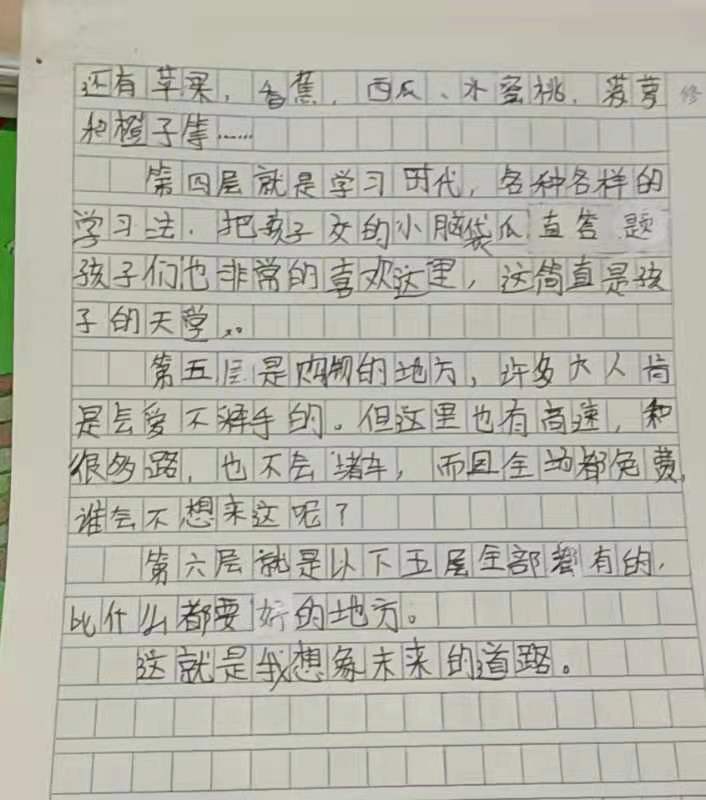 还有苹果，香蕉，西瓜、水蜜桃，菠萝
和橙子等……
第四层就是学习时代，各种各样的
学习法，把孩子交的小脑袋瓜直答题
孩子们也非常的喜欢这里，这简直是孩
子的天堂。
第五层是购物的地方，许多大人肯
是会爱不释手的。但这里也有高速，和
很多路，也不会堵车，而且全场都免费，
谁会不想来这呢？
第六层就是以下五层全部都有的，
比什么都要好的地方。
这就是我想象未来的道路。
修